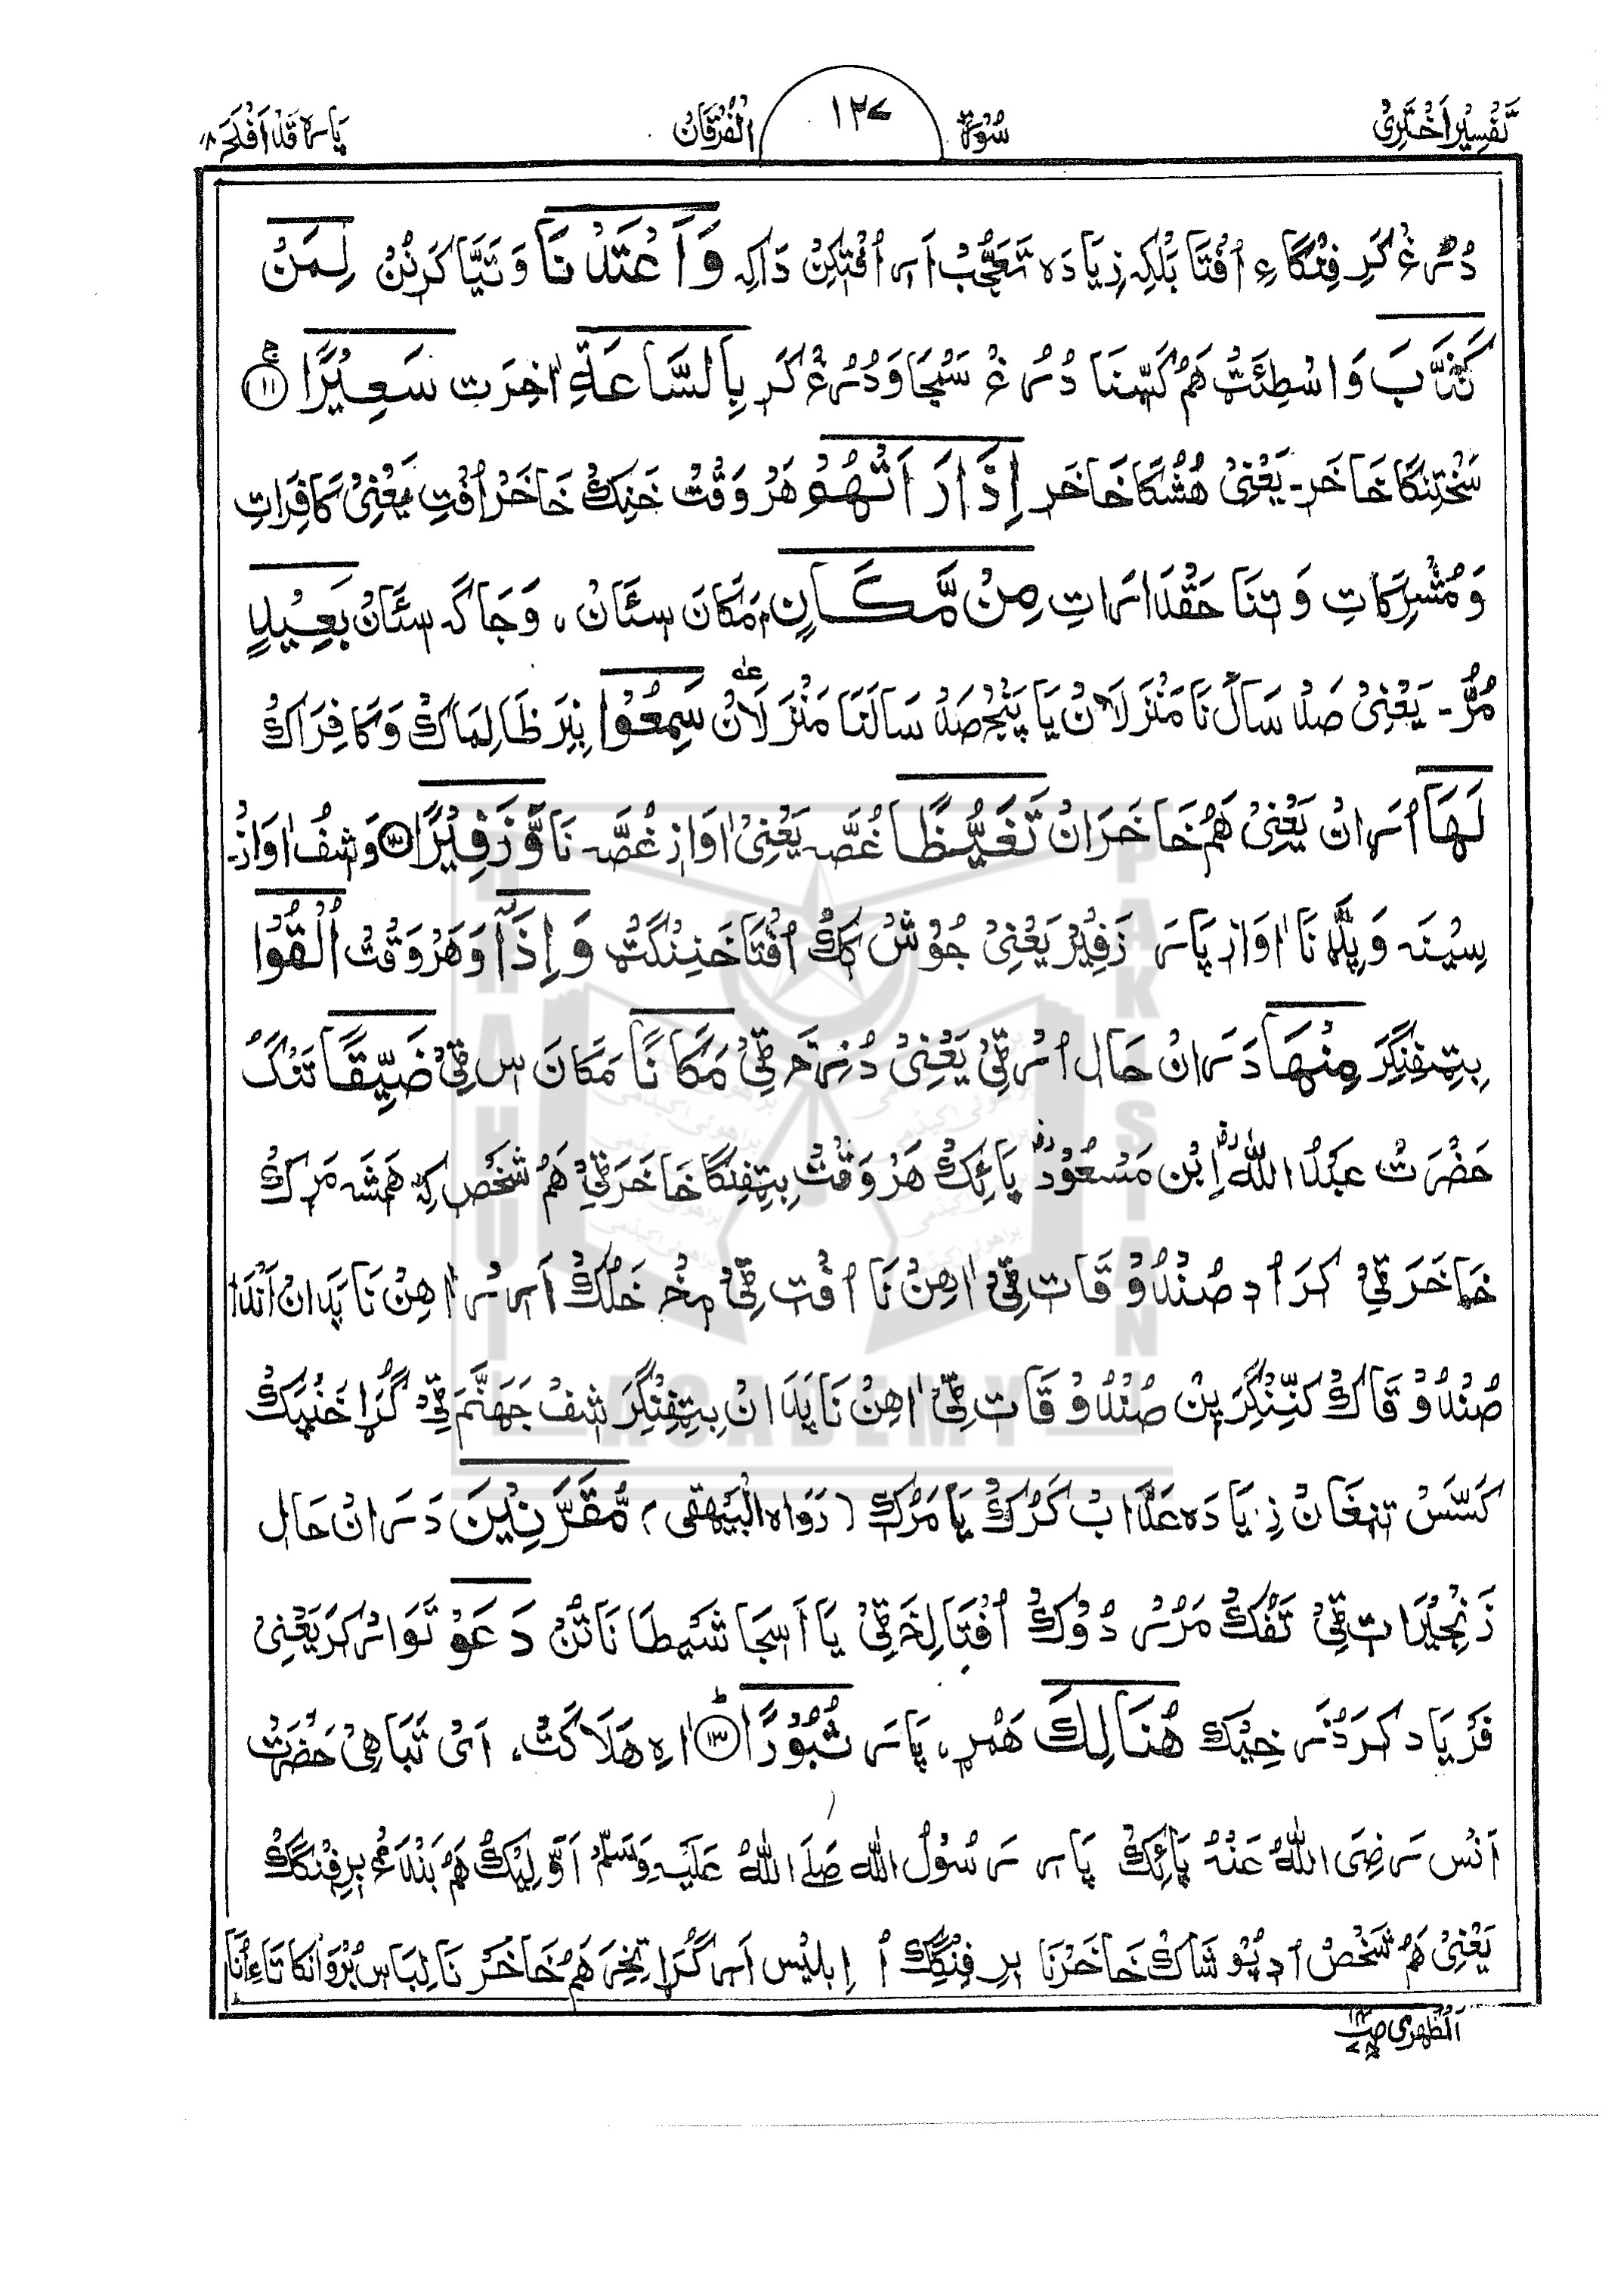 تَفْسِیْرِ اَخْتَرِیْ سُوْرَۃُ ۱۲۷ الْفُرْقَانُ پارہ قَدْ اَفْلَحَ ۱۸
دُرُغْ کَرِ فِنْگَاءِ اُفْتَا بَلْکِہ زِیَادَہ تَعَجُّبْ اَرِ اُفْتِکِنْ دَاکِہ وَاَعْتَدْنَا وَ تَیَّا کَرِنُنْ لِمَنْ
کَذَّبَ وَاسْطِئَتْ ھَمْ کَسِّنَا دُرُغْ سَنْجَا وَ دُرُغْ کَر بِالسَّاعَۃِ اٰخِرَت سَعِیْرًا ۱۱
سَخْتِنْگَا خَاخَر۔ یَعْنِیْ ھُشْنْگَا خَاخَر اِذَا رَاَتْھُمْ ھَرْ وَقْتْ خَنِکْ خَاخَرْ اُفْتِ یَعْنِیْ کَافِرَاتِ
وَ مُشْرِکَاتِ وَ تِنَا حَقْدَارَاتِ مِنْ مَّکَانٍ مَکَانَ سِئَانْ، وَ جَاگَہ سِئَانْ بَعِیْدٍ
مُرُّ۔ یَعْنِیْ صَدْ سَالْ نَا مَنْزَلَانْ یَا پَنْجْ صَدْ سَالْنَا مَنْزَلَانْ سَمِعُوْا بِنِرَ ظَالِمَاکْ وَ کَافِرَاکْ
لَھَا اُرَانْ یَعْنِیْ ھَمْ خَاخَرَانْ تَغَیُّظًا غُصَّہ یَعْنِیْ اٰوَاز غُصَّہ نَا وَّ زَفِیْرًا ۱۲ وَ شِفْ اٰوَازْ۔
سِیْنَہ وَ پِلَّہ نَا اٰوَاز پَارَ زَفِیْرْ یَعْنِیْ جُوْشْ کِکْ اُفْتَا خَنِنْگَتْ وَ اِذَا وَ ھَرْ وَقْتْ اُلْقُوْا
بِتِفِنْگِرَ مِنْھَا دَرَانْ حَال اُرْ ٹِیْ یَعْنِیْ دُزَخْ ٹِیْ مَکَانًا مَکَانَ س ٹِیْ ضَیِّقًا تَنْگْ
حَضْرَتْ عَبْدُ اللہ اِبْن مَسْعُوْد پَائِکْ ھَرْ وَقْتْ بِتِفِنْگَا خَاخَرَ ٹِیْ ھَمْ شَخْص کِہ ھَمَشَہ مَرِکْ
خَاخَرَ ٹِیْ کَرَ اُدِ صُنْدُوْقَات ٹِیْ اٰھِنْ نَا اُفْت ٹِیْ مِخْ خَلُکْ اَرُر اٰھِنْ نَا پَدَانْ اَنْدَا
صُنْدُوْقَاکْ کَنِّنْگِرَ پِنْ صُنْدُوْقَات ٹِیْ اٰھِنْ نَا پَدَانْ بِتِفِنْگِرَ شِفْ جَھَنَّمَ ٹِیْ گُڑَا خَنْپَکْ
کَسَّسْ تِنْغَانْ زِیَادَہ عَذَابْ کَرُکْ یَا مَرُکْ (رَوَاہ الْبَیْھَقِی) مُّقَرَّنِیْنَ دَرَانْ حَال
زَنْجِیْرَات ٹِیْ تَفُکْ مَرُرْ دُوْکْ اُفْتَا لِخَ ٹِیْ یَا اَسِجَا شَیْطَانَاتُنْ دَعَوْ تَوَارْ کَرْ یَعْنِیْ
فَرْیَاد کَرَ وَنَرَ خِیْکْ ھُنَالِکَ ھَمْر، پَارَ ثُبُوْرًا ۱۳ اِہ ھَلَاکَتْ، اَیْ تَبَاھِیْ حَضْرَتْ
اَنَس رَضِیَ اللہُ عَنْہُ پَائِکْ پَار رَسُوْلُ اللہ صَلَے اللہُ عَلَیْہِ وَسَلَّمْ اَوَّلِیْکْ ھَمْ بَنْدَءْ بِرِفِنْگِکْ
یَعْنِیْ ھَمْ شَخْصْ اُدِ پُوْشَاکْ خَاخَرْنَا بِرِفِنْگِکْ اُ اِبْلِیْس اَرِ گُڑَا تِخِرَ ھَمْ خَاخَرْ نَا لِبَاس بُرْوَانْکَا تَاءِ اُنَا
اَلْمُظْھِرِیْ ص